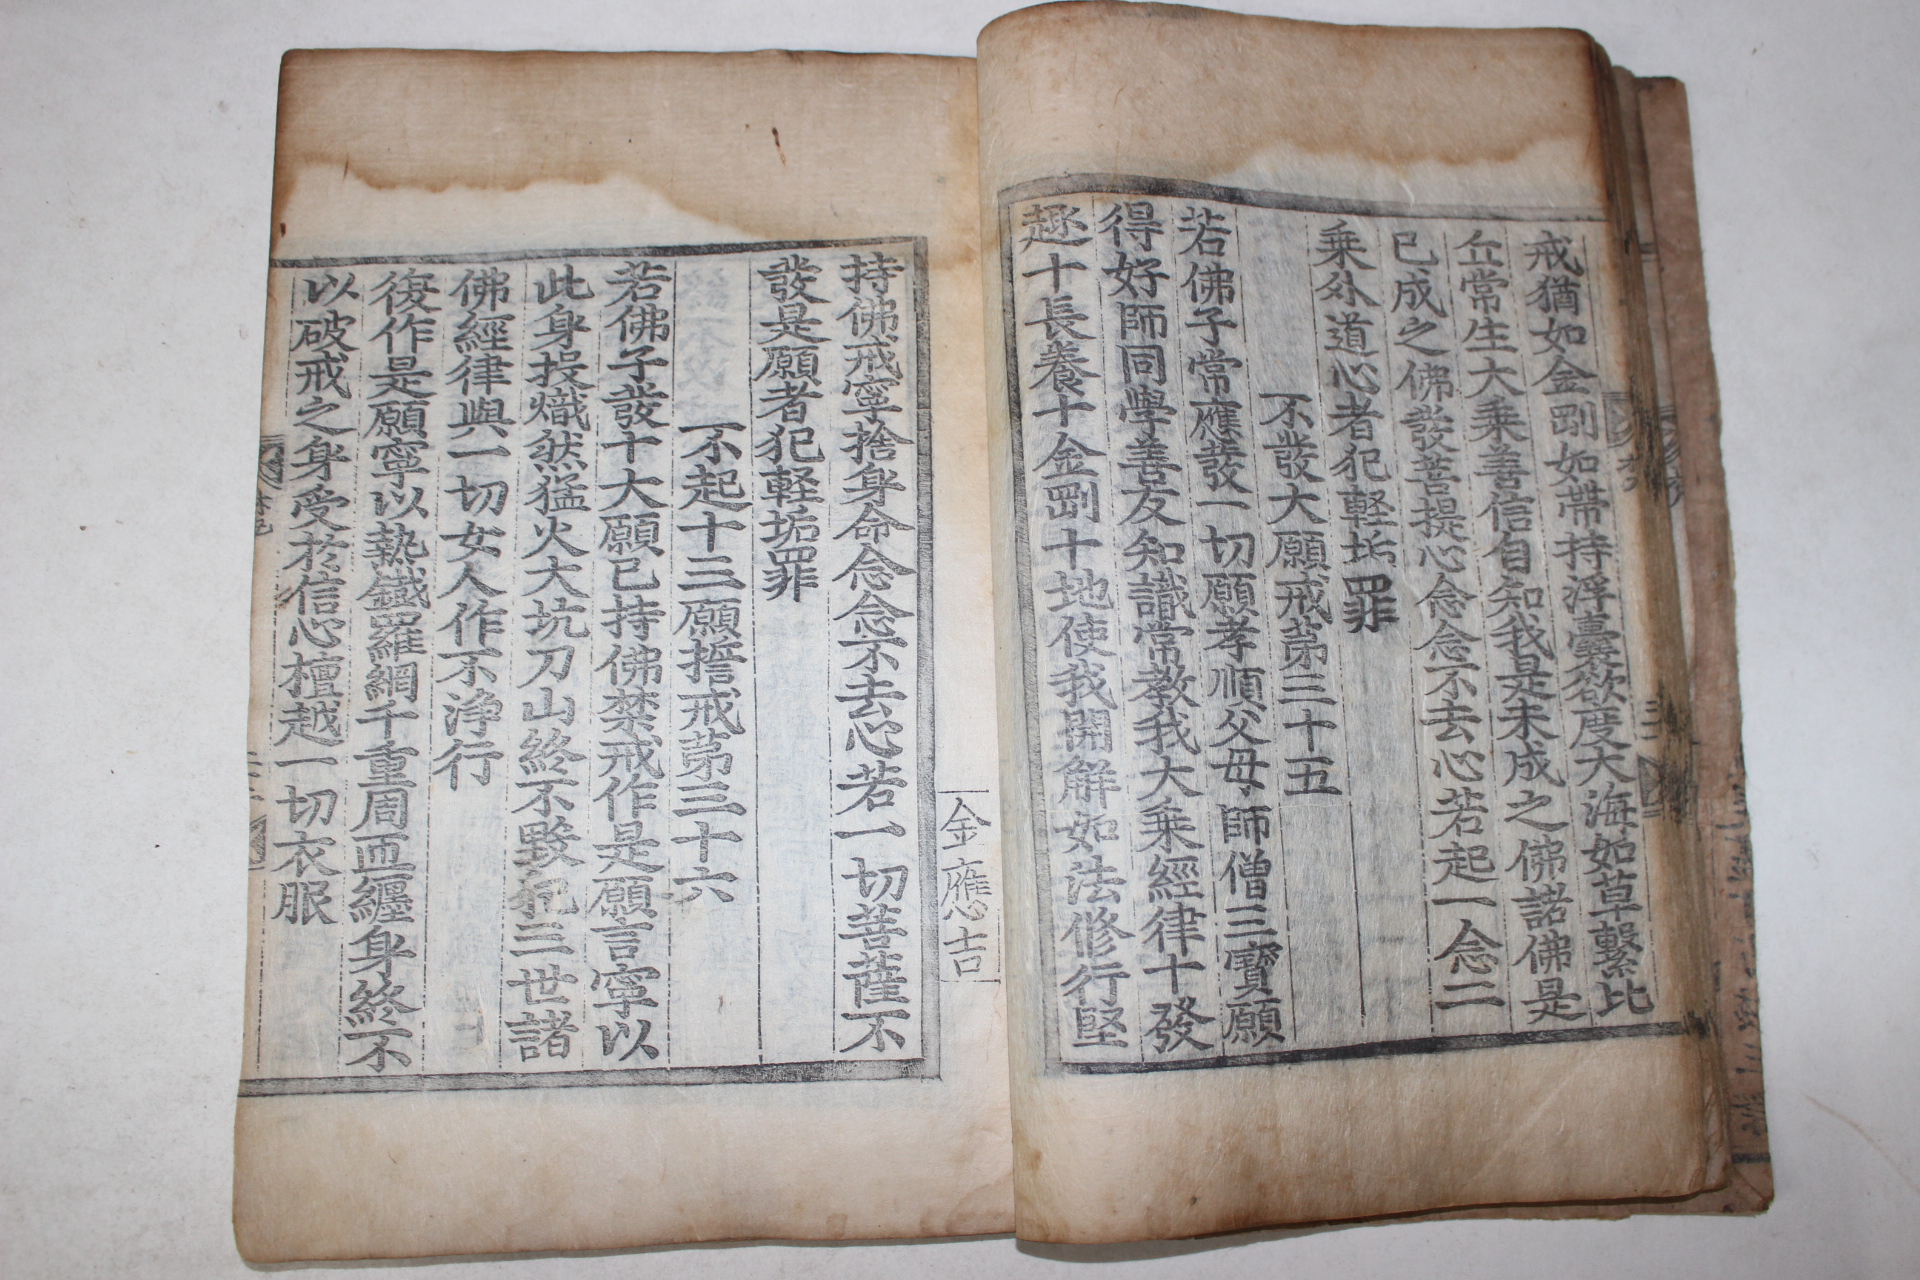 戒猶如金剛如帶持浮囊欲度大海如草繫比
丘常生大乘善信自知我是未成之佛諸佛是
已成之佛發菩提心念念不去心若起一念二
乘外道心者犯輕垢罪
不發大願戒第三十五
若佛子常應發一切願孝順父母師僧三寶願
得好師同學善友知識常教我大乘經律十發
趣十長養十金剛十地使我開解如法修行堅
持佛戒寧捨身命念念不去心若一切菩薩不
發是願者犯輕垢罪
不起十三願誓戒第三十六
若佛子發十大願已持佛禁戒作是願言寧以
此身投熾然猛火大坑刀山終不毀犯三世諸
佛經律與一切女人作不淨行
復作是願寧以熱鐵羅網千重周匝纏身終不
以破戒之身受於信心檀越一切衣服
金應吉